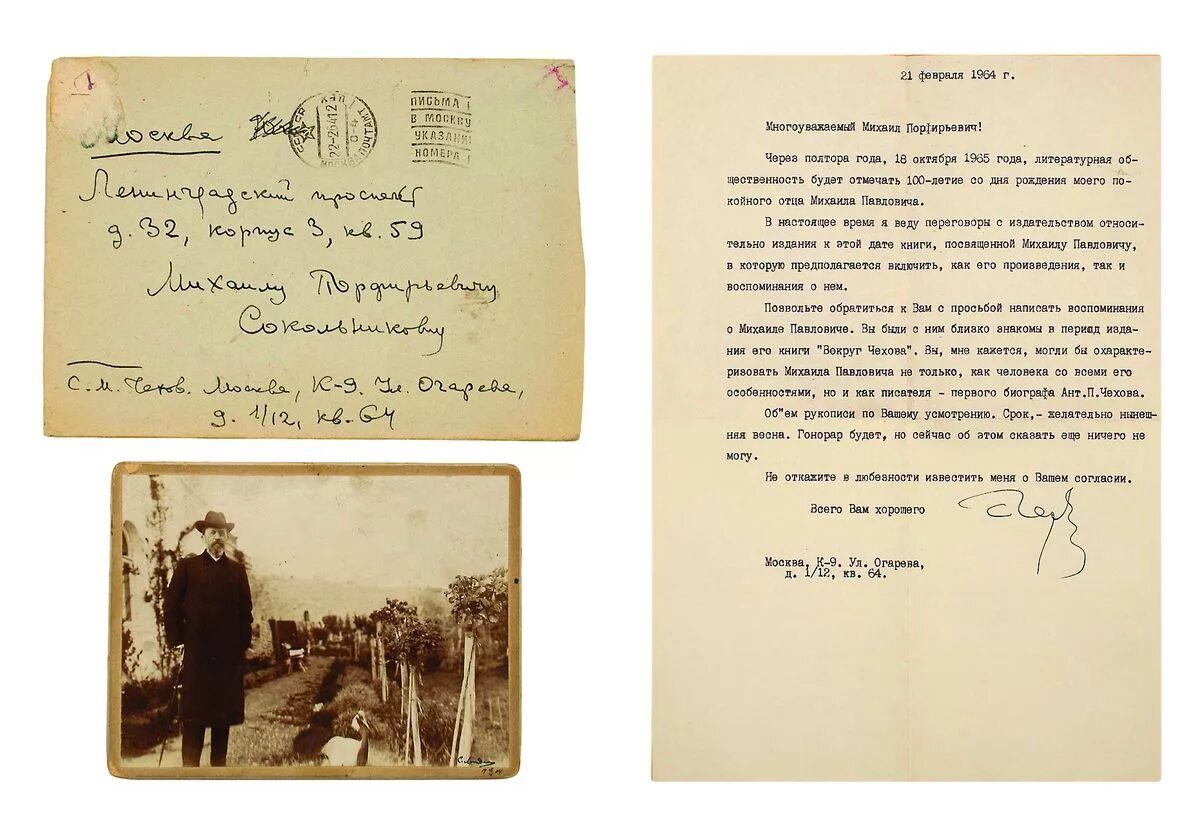 Москва
ПИСЬМА
В МОСКВУ
УКАЗАНИ
НОМЕРА
Ленинградский проспект
д. 32, корпус 3, кв. 59
Михаилу Порфирьевичу
Сокольникову
С. М. Чехов. Москва, К-9. Ул. Огарева,
д. 1/12, кв. 64
21 февраля 1964 г.
Многоуважаемый Михаил Порфирьевич!
Через полтора года, 18 октября 1965 года, литературная об-
щественность будет отмечать 100-летие со дня рождения моего по-
койного отца Михаила Павловича.
В настоящее время я веду переговоры с издательством относи-
тельно издания к этой дате книги, посвященной Михаилу Павловичу,
в которую предполагается включить, как его произведения, так и
воспоминания о нем.
Позвольте обратиться к Вам с просьбой написать воспоминания
о Михаиле Павловиче. Вы были с ним близко знакомы в период изда-
ния его книги "Вокруг Чехова". Вы, мне кажется, могли бы охаракте-
ризовать Михаила Павловича не только, как человека со всеми его
особенностями, но и как писателя - первого биографа Ант.П.Чехова.
Об"ем рукописи по Вашему усмотрению. Срок,- желательно нынеш-
няя весна. Гонорар будет, но сейчас об этом сказать еще ничего не
могу.
Не откажите в любезности известить меня о Вашем согласии.
Всего Вам хорошего
Москва, К-9. Ул. Огарева,
д. 1/12, кв. 64.